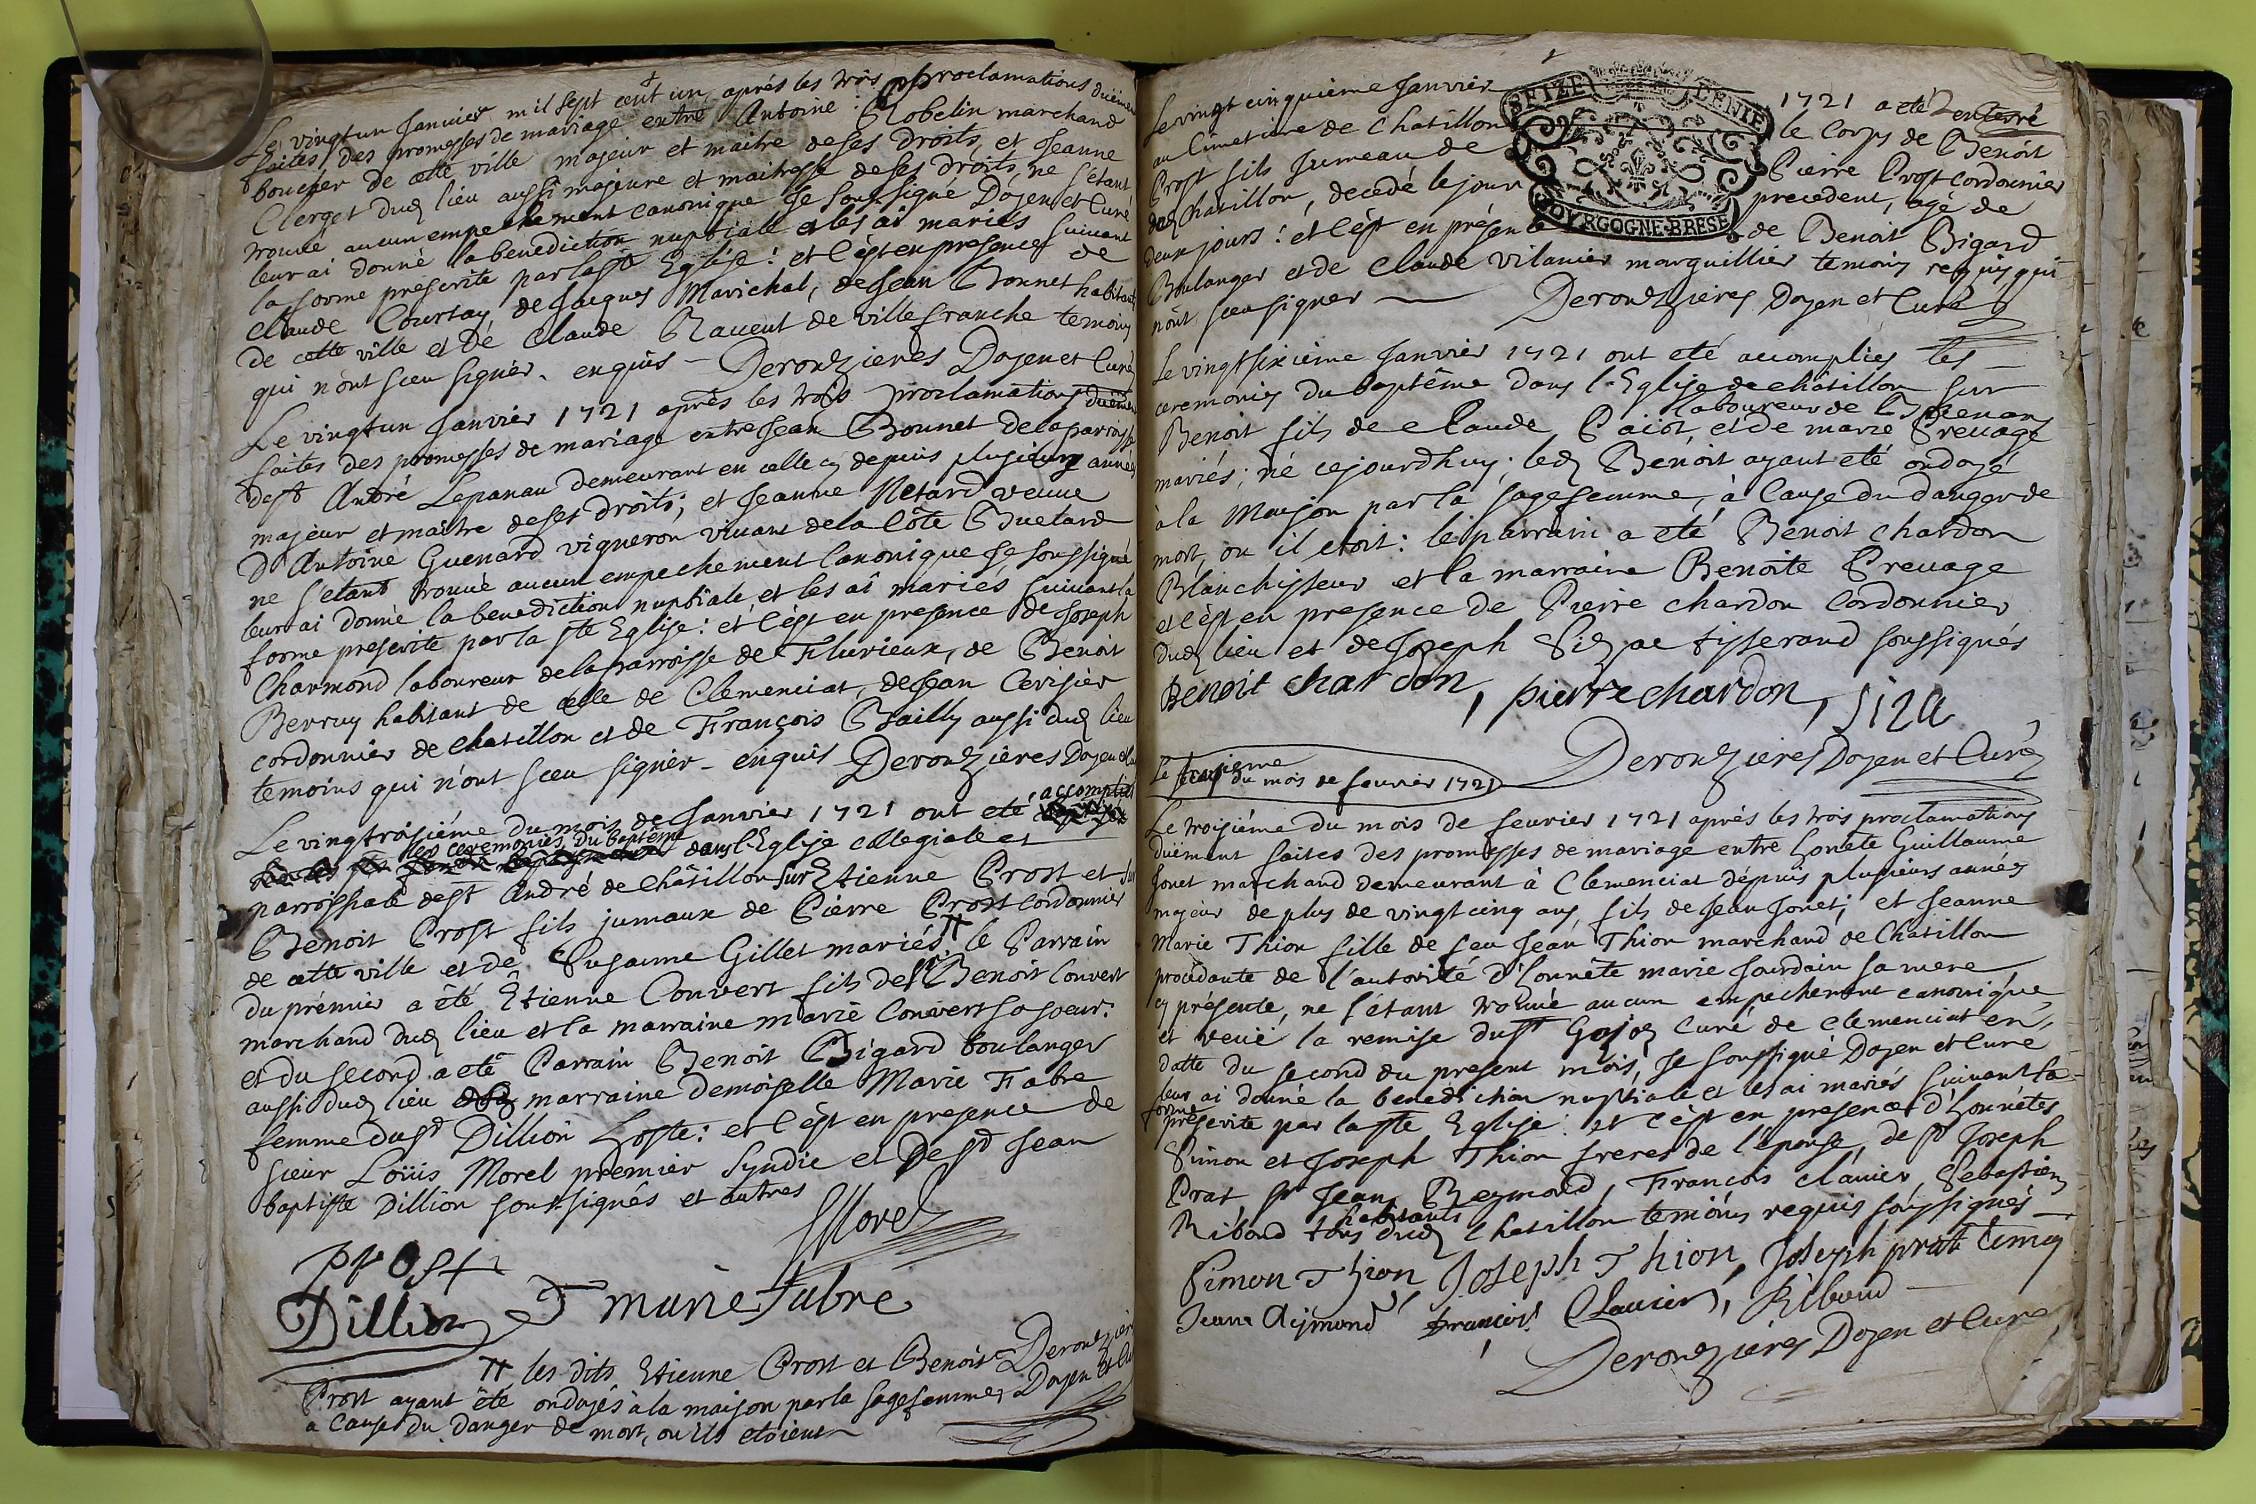 Le vingt un Janvier mil sept cent un aprés les trois proclamations duëment
faites des promesses de mariage entre Antoine Robelin marchand
boucher de cette ville majeur et maitre de ses droits, et Jeanne
Clerget dud lieu aussi majeure et maitresse de ses droits, ne s'étant
trouvé aucun empechement canonique Je soussigné Doyen et Curé
leur ai donné la benediction nuptiale et les ai mariés suivant
la forme prescrite par la ste Eglise: et c'est en presence de
Claude Courtay de Jacques Marichal, de Jean Bonnet habitants
de cette ville et de Claude Ravent de villefranche temoins
qui n'ont sceu signer. enquis - Derouzieres Doyen et Curé
Le vingt un Janvier 1721 aprés les trois proclamations duëment
faites des promesses de mariage entre Jean Bonnet de la parroisse
de st André Lepanau demeurant en celle cy depuis plusieurs années
majeur et maitre de ses droits; et Jeanne Netard veuve
d'Antoine Guenard vigneron vivant de la Côte Buetard
ne s'étant trouvé aucun empechement canonique Je soussigné
leur ai donné la benediction nuptiale et les ai mariés suivant la
forme prescrite par la ste Eglise: et c'est en presence de Joseph
Charmond laboureur de la parroisse de Flurieux, de Benoit
Berruy habitant de celle de Clemenciat, de Jean Cerisier
cordonnier de chatillon et de François Bailly aussi dud lieu
temoins qui n'ont sceu signer - enquis Derouzières Doyen et Cu
Le vingtroisiéme du mois de Janvier 1721 ont eté accomplies
les ceremonies du baptême dans l'Eglise collegiale et
parroissiale de st André de châtillon sur Etienne Prost et sur
Benoit Prost fils jumaux de Pierre Prost cordonnier
de cette ville et de Susanne Gillet mariés # le Parrain
du prémier a été Etienne Convert fils de sr Benoit Convert
marchand dud lieu et la marraine marie Convert sa soeur:
et du second a eté Parrain Benoit Bigard boulanger
aussi dud lieu marraine demoiselle Marie Fabre
femme du sr Dillion hoste: et c'est en presence de
sieur Loüis Morel premier syndic et de sr Jean
baptiste Dillion soussignés et autres
Morel
prost
Dillion F marie fabre
# les dits Etienne Prost et Benoist Derouzieres
Prost ayant été ondoyés à la maison par la sagefemme, Doyen et Cu
a cause du danger de mort, ou ils etoient
Le vingt cinquieme Janvier 1721 a eté enterré
au Cimetiere de Chatillon le corps de Benoit
Prost fils Jumeau de Pierre Prost cordonnier
dud Chatillon, decedé le jour precedent, agé de
deux jours: et c'est en présence de Benoit Bigard
Boulanger et de Claude vilanier marguillier temoins requis qui
n'ont sceu signer Derouzieres Doyen et Curé
SEIZE DENIE
BOVRGOGNE·BRESE
Le vingtsixième Janvier 1721 ont eté accomplies les
ceremonies du baptême dans l'Eglise de châtillon sur
laboureur de
Benoit fils de Claude Paiot, et de marie Prevage
mariés; né cejourdhuy; led Benoit ayant eté ondoyé
à la Maison par la sagefemme, à cause du danger de
mort, ou il etoit: le parrain a eté Benoit chardon
Blanchisseur et la marraine Benoite Prevage
et c'est en presence de Pierre chardon Cordonnier
dud lieu et de Joseph tisserand soussignés
Benoit chardon, pierre chardon, siza
Derouzieres Doyen et Curé
Le troisieme du mois de fevrier 1721
Le troisiéme du mois de fevrier 1721 aprés les trois proclamations
duëment faites des promesses de mariage entre honéte Guillaume
Jonet marchand demeurant à Clemenciat depuis plusieurs années
majeur de plus de vingt cinq ans, fils de Jean Jonet; et Jeanne
Marie Thion fille de feu Jean Thion marchand de Chatillon
procedante de l'autorité d'honnête marie Jourdain sa mere
cy présente, ne s'étant trouvé aucun empechement canonique,
et veüe la remise du sr Gojoz curé de Clemenciat en
datte du second du present mois, Je soussigné Doyen et Curé
leur ai donné la benediction nuptiale et les ai mariés suivant la
forme
prescrite par la ste Eglise: et c'est en presence d'honnêtes
Simon et Joseph Thion freres de l'epouse, de sr Joseph
Prat sr Jean Reymond, François clavier, Sebastien
habitants
Riboud tous dud Chatillon temoins requis soussignés
Simon Thion, Joseph Thion, Joseph prat temoy
Jean Reymond, françois Clavier, Riboud
Derouzieres Doyen et Cure